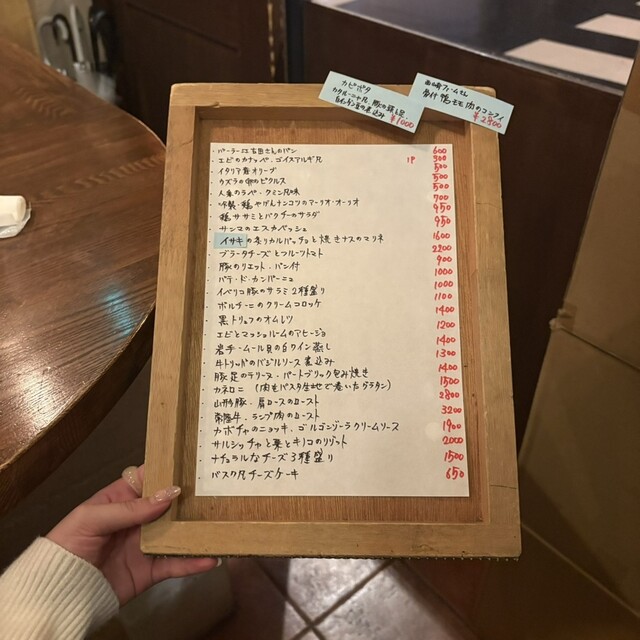 カピポタ
カタルーニャ 豚の頭と足
白インゲン豆の煮込み ¥1000
ファームさん
骨付 鴨モモ肉のコンフィ
¥2800
・パーラー江古田さんのパン 600
・エビのカナッペ、ゴイスアルギ風 1P 300
・イタリア産オリーブ 500
・ウズラの卵のピクルス 500
・人参のラペ・クミン風味 500
・砂肝・鶏やげんナンコツのアーリオ・オーリオ 700
・鶏ササミとバクダーのサラダ 950
・サンマのエスカベッシュ 950
・イサキの炙りカルパッチョと焼きナスのマリネ 1600
・ブラータチーズとフルーツトマト 2200
・豚のリエット、パン付 900
・パテ・ド・カンパーニュ 1000
・イベリコ豚のサラミ2種盛り 1000
・ポルチーニのクリームコロッケ 1100
・黒トリュフのオムレツ 1400
・エビとマッシュルームのアヒージョ 1200
・岩手ムール貝の白ワイン蒸し 1400
・牛トリッパのバジルソース煮込み 1300
・豚足のテリーヌ・パートブリック包み焼き 1400
・カネロニ (肉をパスタ生地で巻いたグラタン) 1500
・山形豚、肩ロースのロースト 2800
・常陸牛、ランプ肉のロースト 3200
・カボチャのニョッキ、ゴルゴンゾーラクリームソース 1900
・サルシッチャと栗とキノコのリゾット 2000
・ナチュラルなチーズ3種盛り 1500
・バスク風チーズケーキ 650